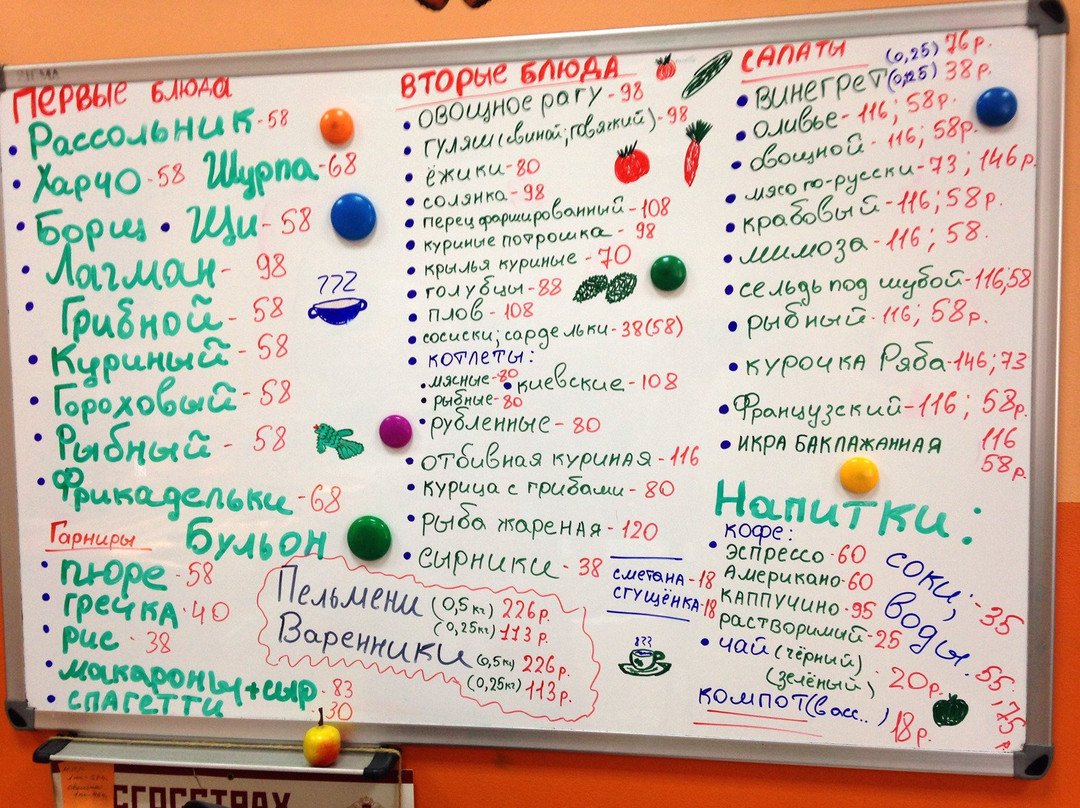 ПЕРВЫЕ БЛЮДА
Рассольник - 58
Харчо - 58 Шурпа - 68
Борщ • Щи - 58
Лагман - 98
Грибной - 58
Куриный - 58
Гороховый - 58
Рыбный - 58
Фрикадельки - 68
Бульон
Гарниры
пюре - 58
гречка - 40
рис - 38
макароны + сыр - 83
спагетти 30
ВТОРЫЕ БЛЮДА
овощное рагу - 98
гуляш (свиной; говяжий) - 98
ёжики - 80
солянка - 98
перец фаршированный - 108
куриные потрошка - 98
крылья куриные - 70
голубцы - 88
плов - 108
сосиски; сардельки - 38 (58)
котлеты:
мясные - 80 • киевские - 108
рыбные - 80
рубленные - 80
отбивная куриная - 116
курица с грибами - 80
рыба жареная - 120
сырники - 38
сметана - 18
сгущёнка - 18
Пельмени (0,5 кг) 226р.
(0,25кг) 113р.
Варенники (0,5кг) 226р.
(0,25кг) 113р.
САЛАТЫ
(0,25) 76р.
винегрет (0,125) 38р.
оливье - 116; 58р.
овощной - 116; 58р.
мясо по-русски - 73; 146р.
крабовый - 116; 58р.
мимоза - 116; 58.
сельдь под шубой - 116, 58
рыбный - 116; 58р.
курочка Ряба - 146; 73
Французский - 116; 58р.
икра баклажанная 116
58р.
Напитки:
кофе:
эспрессо - 60
Американо - 60
каппучино - 95
растворимый - 25
чай (чёрный)
(зелёный) - 20р.
компот (в асс..) 18р.
соки; воды - 35
55,
75